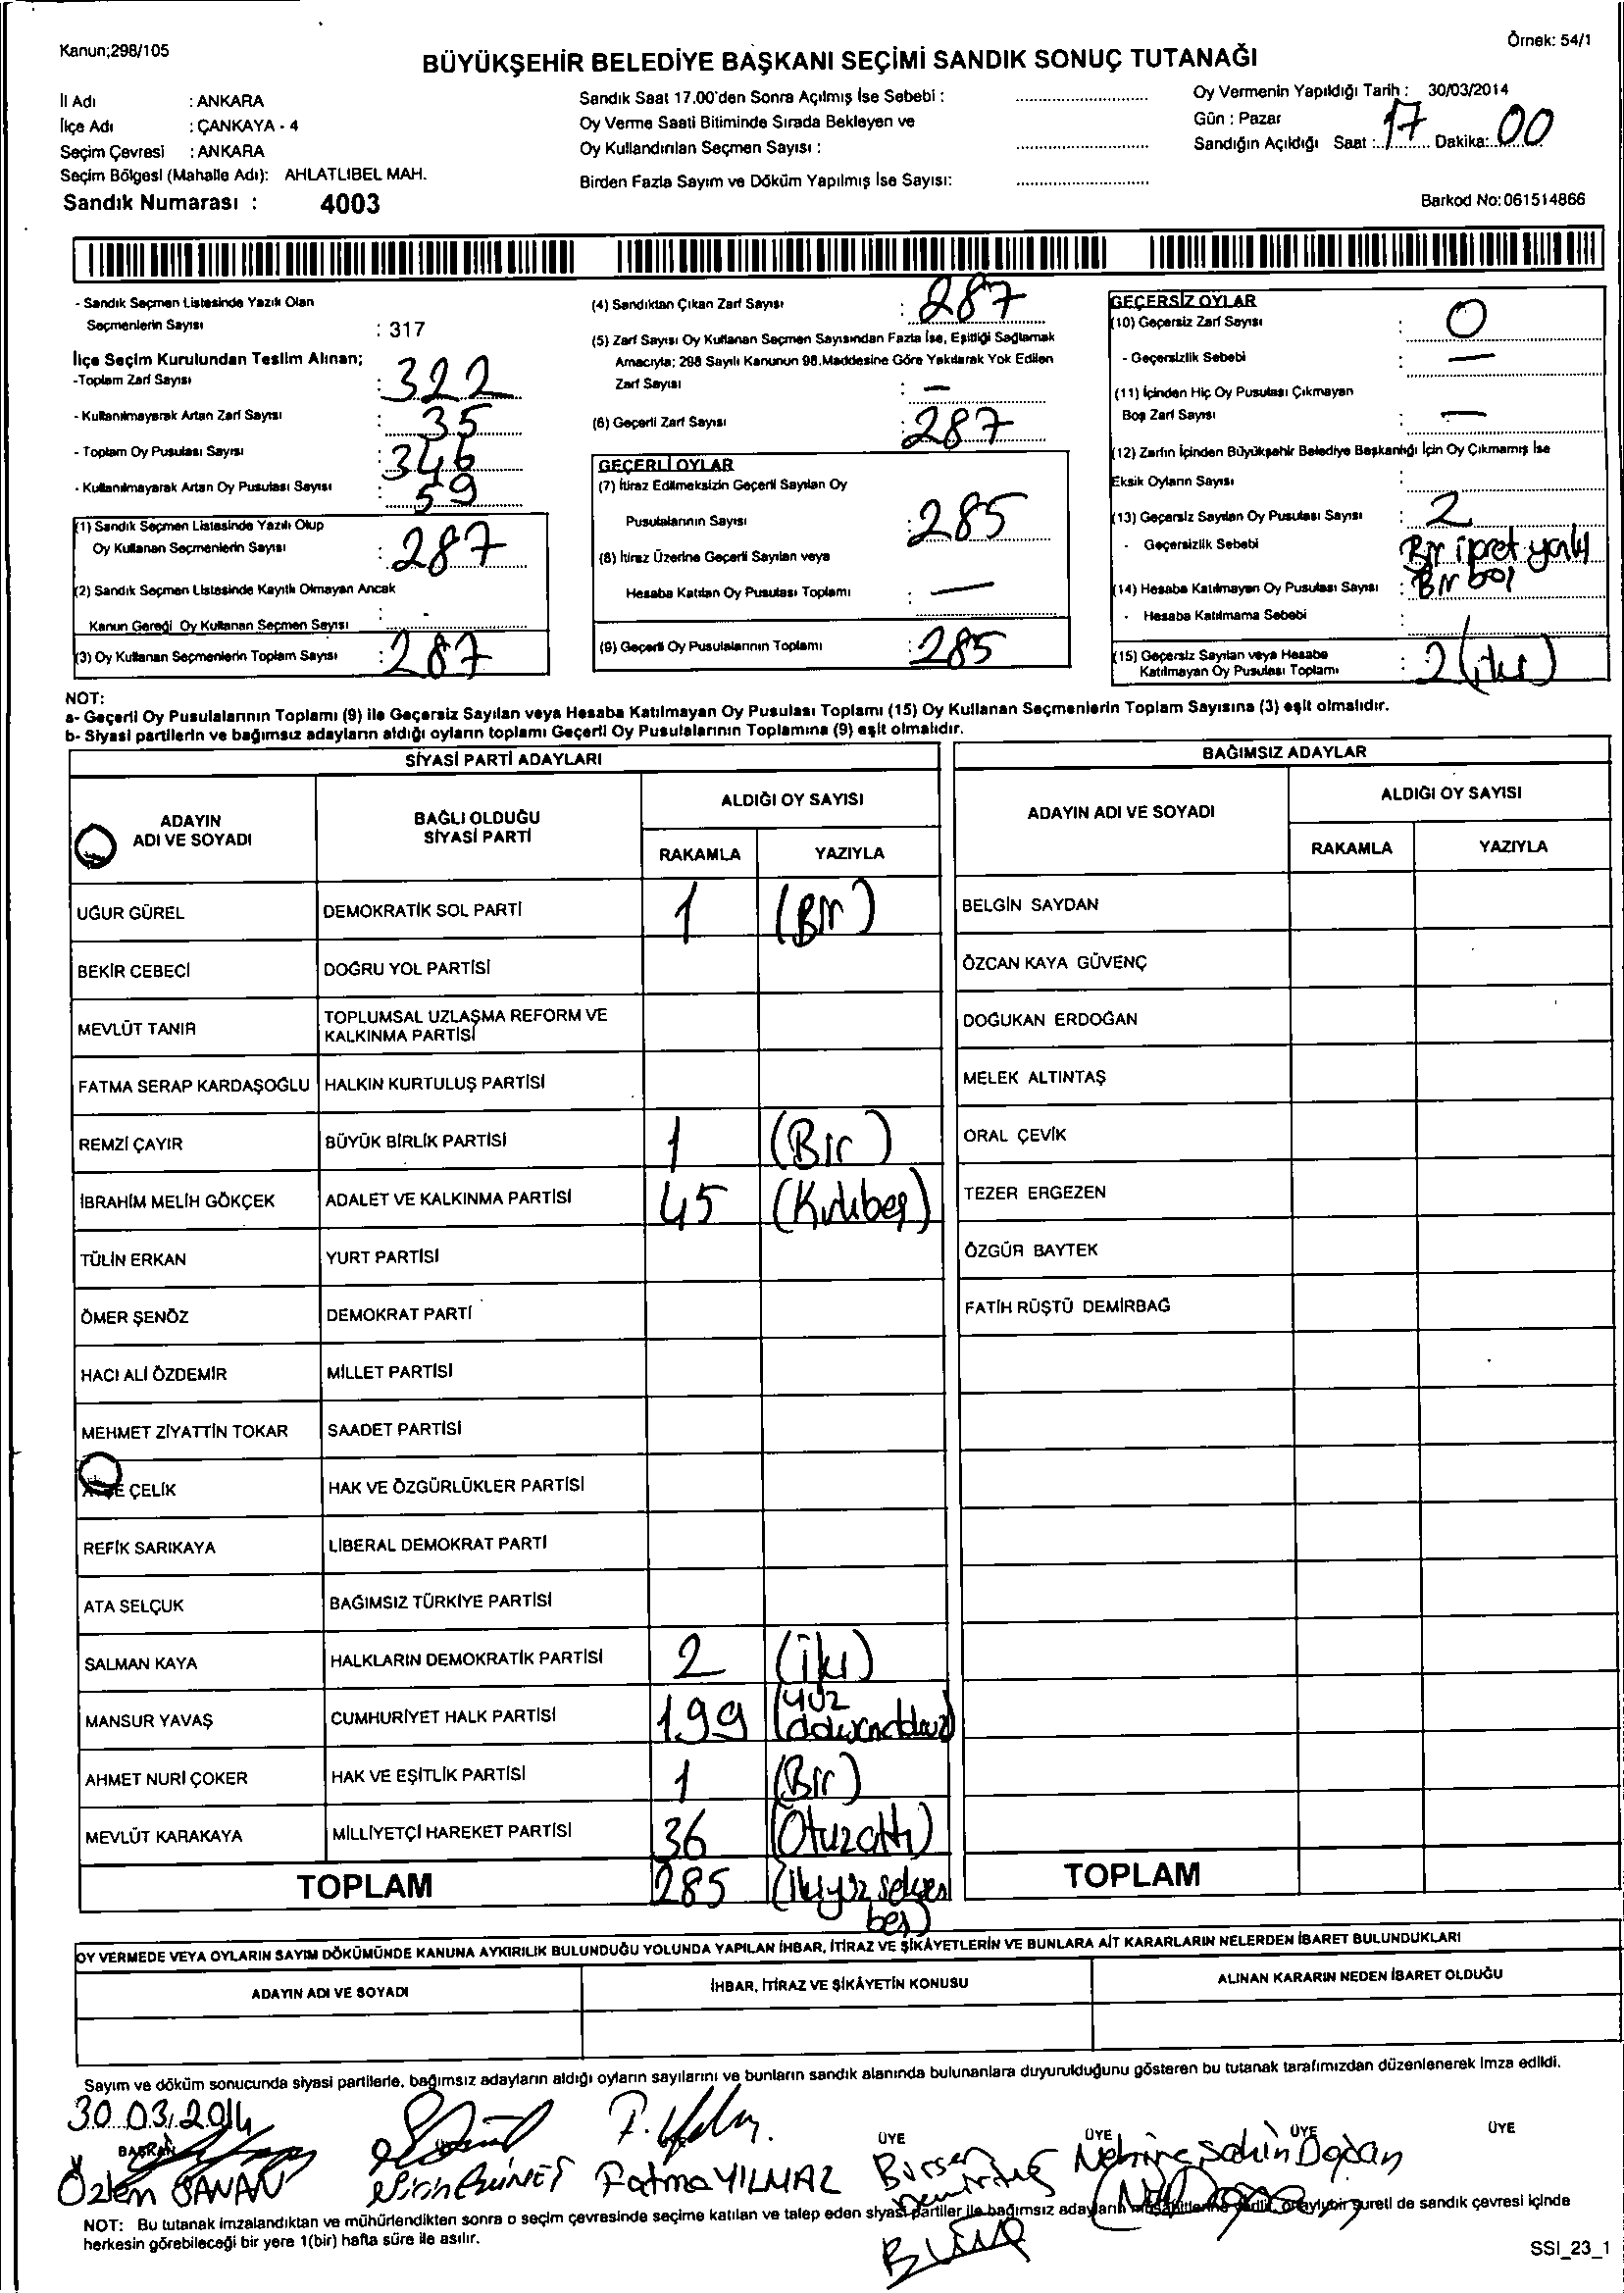 Kanun;298/105
Örnek: 54/1
BÜYÜKŞEHİR BELEDİYE BAŞKANI SEÇİMİ SANDIK SONUÇ TUTANAĞI
İl Adı : ANKARA
İlçe Adı : ÇANKAYA - 4
Seçim Çevresi : ANKARA
Seçim Bölgesi (Mahalle Adı): AHLATLIBEL MAH.
Sandık Numarası : 4003
Sandık Saat 17.00'den Sonra Açılmış İse Sebebi :
Oy Verme Saati Bitiminde Sırada Bekleyen ve
Oy Kullandırılan Seçmen Sayısı :
Birden Fazla Sayım ve Döküm Yapılmış İse Sayısı:
Oy Vermenin Yapıldığı Tarih : 30/03/2014
Gün : Pazar
Sandığın Açıldığı Saat : 17 Dakika: 00
Barkod No:061514866
- Sandık Seçmen Listesinde Yazılı Olan
Seçmenlerin Sayısı : 317
İlçe Seçim Kurulundan Teslim Alınan;
-Toplam Zarf Sayısı : 322
- Kullanılmayarak Artan Zarf Sayısı : 35
- Toplam Oy Pusulası Sayısı : 346
- Kullanılmayarak Artan Oy Pusulası Sayısı : 59
(1) Sandık Seçmen Listesinde Yazılı Olup
Oy Kullanan Seçmenlerin Sayısı : 287
(2) Sandık Seçmen Listesinde Kayıtlı Olmayan Ancak
Kanun Gereği Oy Kullanan Seçmen Sayısı :
(3) Oy Kullanan Seçmenlerin Toplam Sayısı : 287
(4) Sandıktan Çıkan Zarf Sayısı : 287
(5) Zarf Sayısı Oy Kullanan Seçmen Sayısından Fazla İse, Eşitliği Sağlamak
Amacıyla; 298 Sayılı Kanunun 98.Maddesine Göre Yakılarak Yok Edilen
Zarf Sayısı : —
(6) Geçerli Zarf Sayısı : 287
GEÇERLİ OYLAR
(7) İtiraz Edilmeksizin Geçerli Sayılan Oy
Pusulalarının Sayısı : 285
(8) İtiraz Üzerine Geçerli Sayılan veya
Hesaba Katılan Oy Pusulası Toplamı : —
(9) Geçerli Oy Pusulalarının Toplamı : 285
GEÇERSİZ OYLAR
(10) Geçersiz Zarf Sayısı : 0
- Geçersizlik Sebebi : —
(11) İçinden Hiç Oy Pusulası Çıkmayan
Boş Zarf Sayısı : —
(12) Zarfın İçinden Büyükşehir Belediye Başkanlığı İçin Oy Çıkmamış İse
Eksik Oyların Sayısı :
(13) Geçersiz Sayılan Oy Pusulası Sayısı : 2
- Geçersizlik Sebebi : Bir
(14) Hesaba Katılmayan Oy Pusulası Sayısı : Bir boş
- Hesaba Katılmama Sebebi :
(15) Geçersiz Sayılan veya Hesaba
Katılmayan Oy Pusulası Toplamı : 2 (iki)
NOT:
a- Geçerli Oy Pusulalarının Toplamı (9) ile Geçersiz Sayılan veya Hesaba Katılmayan Oy Pusulası Toplamı (15) Oy Kullanan Seçmenlerin Toplam Sayısına (3) eşit olmalıdır.
b- Siyasi partilerin ve bağımsız adayların aldığı oyların toplamı Geçerli Oy Pusulalarının Toplamına (9) eşit olmalıdır.
SİYASİ PARTİ ADAYLARI
ADAYIN ADI VE SOYADI
BAĞLI OLDUĞU SİYASİ PARTİ
ALDIĞI OY SAYISI
RAKAMLA YAZIYLA
UĞUR GÜREL DEMOKRATİK SOL PARTİ 1 (Bir)
BEKİR CEBECİ DOĞRU YOL PARTİSİ
MEVLÜT TANIR TOPLUMSAL UZLAŞMA REFORM VE KALKINMA PARTİSİ
FATMA SERAP KARDAŞOĞLU HALKIN KURTULUŞ PARTİSİ
REMZİ ÇAYIR BÜYÜK BİRLİK PARTİSİ 1 (Bir)
İBRAHİM MELİH GÖKÇEK ADALET VE KALKINMA PARTİSİ 45 (Kırkbeş)
TÜLİN ERKAN YURT PARTİSİ
ÖMER ŞENÖZ DEMOKRAT PARTİ
HACI ALİ ÖZDEMİR MİLLET PARTİSİ
MEHMET ZİYATTİN TOKAR SAADET PARTİSİ
ÇELİK HAK VE ÖZGÜRLÜKLER PARTİSİ
REFİK SARIKAYA LİBERAL DEMOKRAT PARTİ
ATA SELÇUK BAĞIMSIZ TÜRKİYE PARTİSİ
SALMAN KAYA HALKLARIN DEMOKRATİK PARTİSİ 2 (iki)
MANSUR YAVAŞ CUMHURİYET HALK PARTİSİ 199 (yüz doksandokuz)
AHMET NURİ ÇOKER HAK VE EŞİTLİK PARTİSİ 1 (Bir)
MEVLÜT KARAKAYA MİLLİYETÇİ HAREKET PARTİSİ 36 (Otuzaltı)
TOPLAM 285 (ikiyüz seksen beş)
BAĞIMSIZ ADAYLAR
ADAYIN ADI VE SOYADI
ALDIĞI OY SAYISI
RAKAMLA YAZIYLA
BELGİN SAYDAN
ÖZCAN KAYA GÜVENÇ
DOĞUKAN ERDOĞAN
MELEK ALTINTAŞ
ORAL ÇEVİK
TEZER ERGEZEN
ÖZGÜR BAYTEK
FATİH RÜŞTÜ DEMİRBAĞ
TOPLAM
OY VERMEDE VEYA OYLARIN SAYIM DÖKÜMÜNDE KANUNA AYKIRILIK BULUNDUĞU YOLUNDA YAPILAN İHBAR, İTİRAZ VE ŞİKÂYETLERİN VE BUNLARA AİT KARARLARIN NELERDEN İBARET BULUNDUKLARI
ADAYIN ADI VE SOYADI
İHBAR, İTİRAZ VE ŞİKÂYETİN KONUSU
ALINAN KARARIN NEDEN İBARET OLDUĞU
Sayım ve döküm sonucunda siyasi partilerle, bağımsız adayların aldığı oyların sayılarını ve bunların sandık alanında bulunanlara duyurulduğunu gösteren bu tutanak tarafımızdan düzenlenerek imza edildi.
30.03.2014
BAŞKAN ÜYE ÜYE ÜYE ÜYE
Özlem Fatma YILMAZ Şahin Doğan
NOT: Bu tutanak imzalandıktan ve mühürlendikten sonra o seçim çevresinde seçime katılan ve talep eden siyasi partiler ile bağımsız adayların bir sureti de sandık çevresi içinde
herkesin görebileceği bir yere 1(bir) hafta süre ile asılır.
SSI_23_1